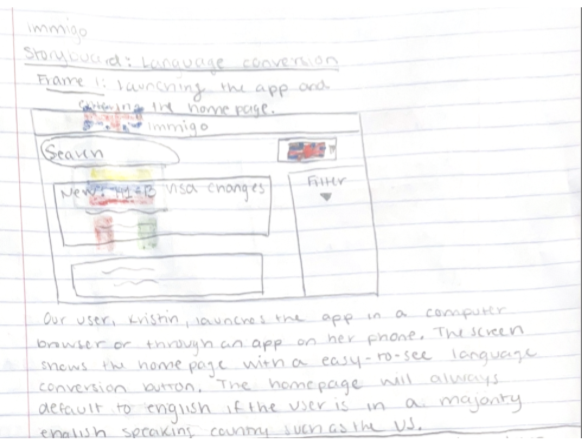 immigo
Storyboard: Language conversion
Frame 1: Launching the app and
the home page.
immigo
Search
New: H1-B visa changes
Filter
Our user, Kristin, launches the app in a computer
browser or through an app on her phone. The screen
shows the homepage with a easy-to-see language
conversion button. The homepage will always
default to english if the user is in a majority
english speaking country such as the US.